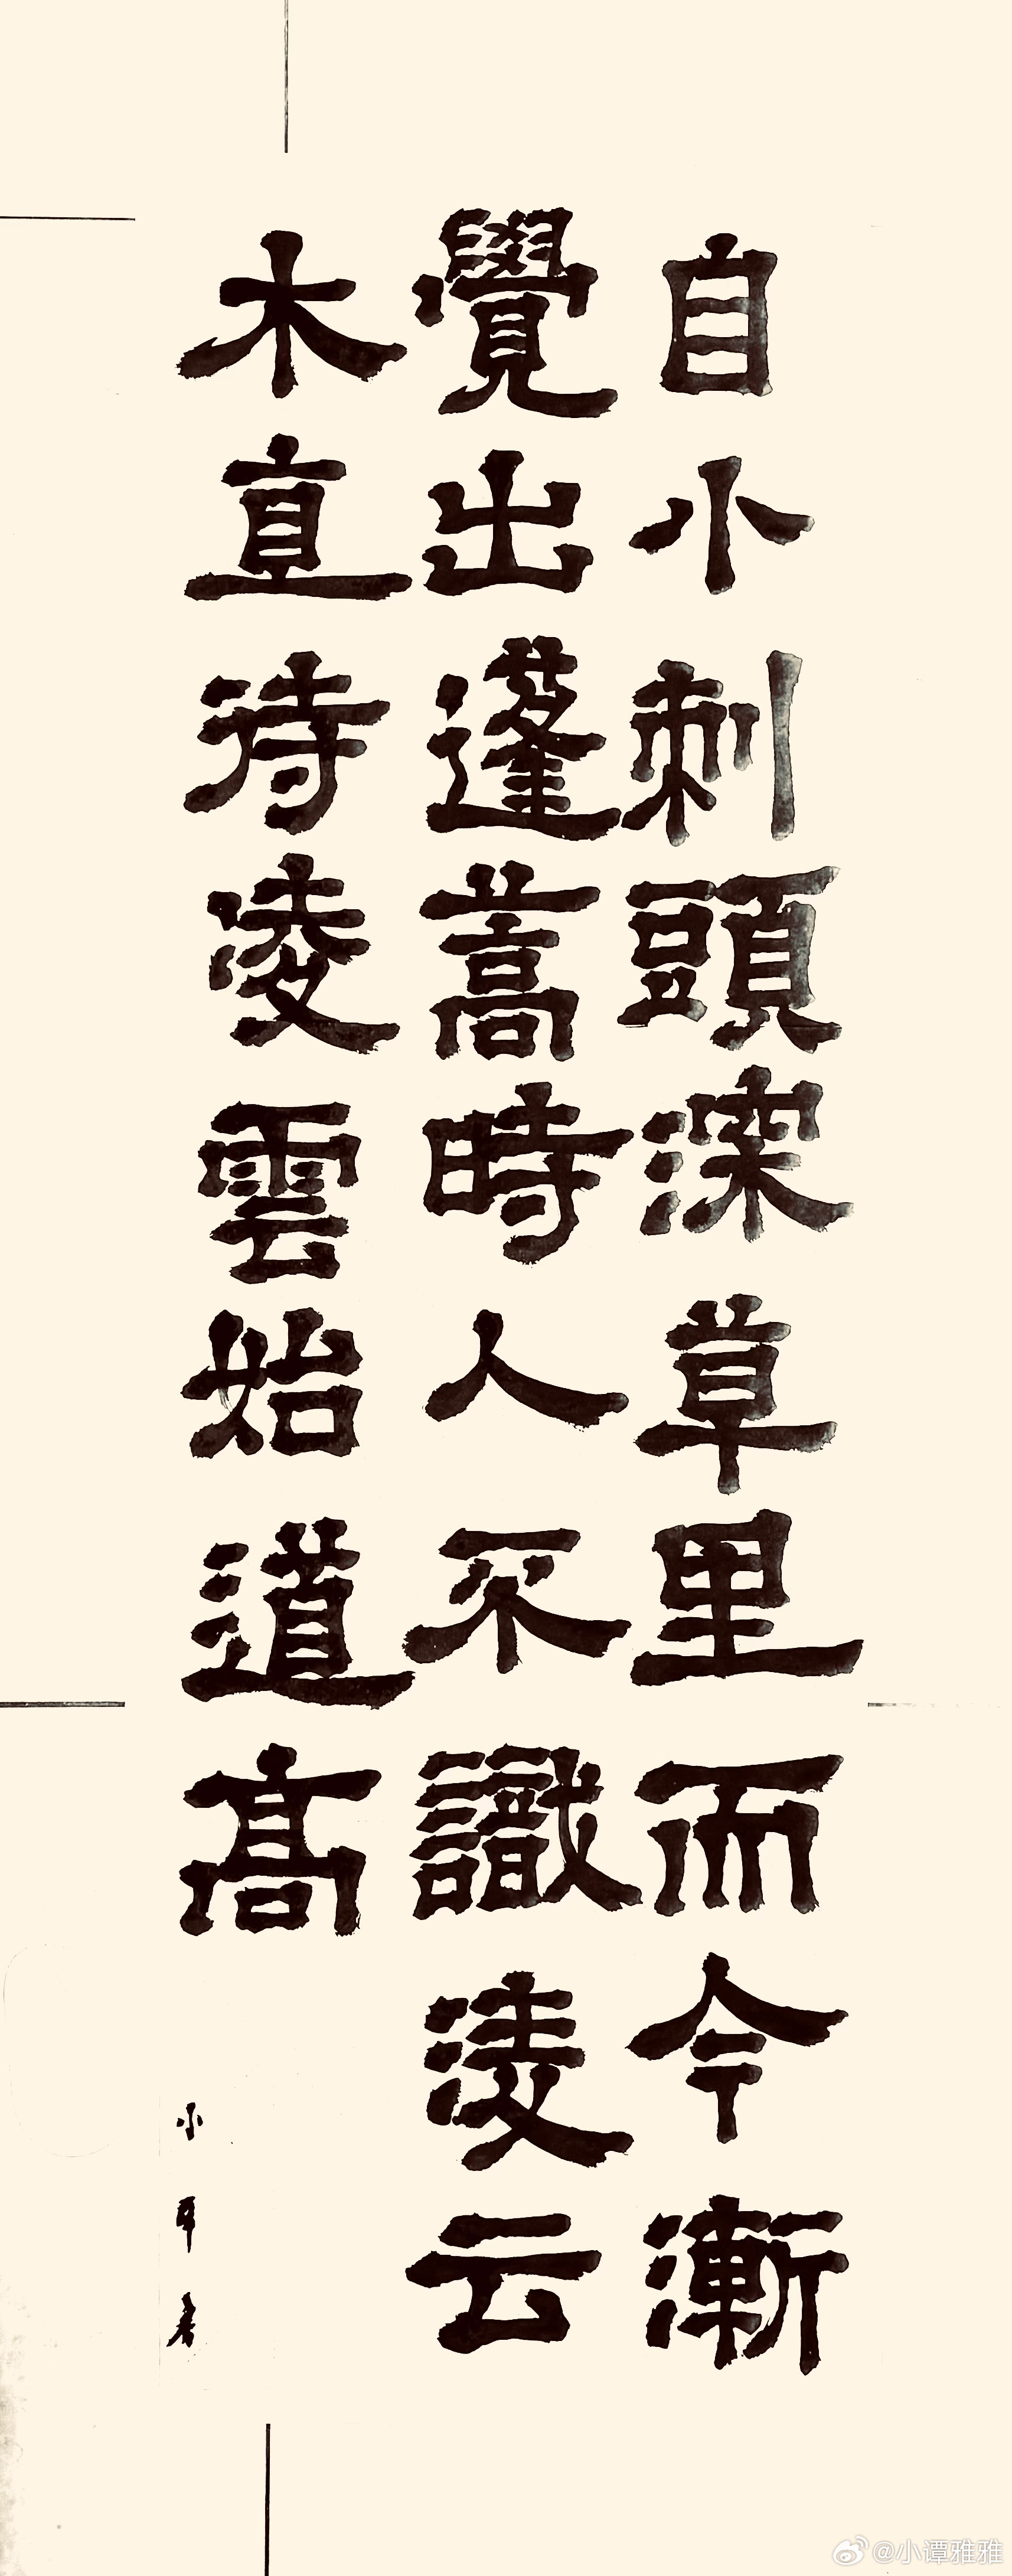 自小刺頭深草里而今漸
覺出蓬蒿時人不識淩云
木直待凌雲始道高
@小谭雅雅